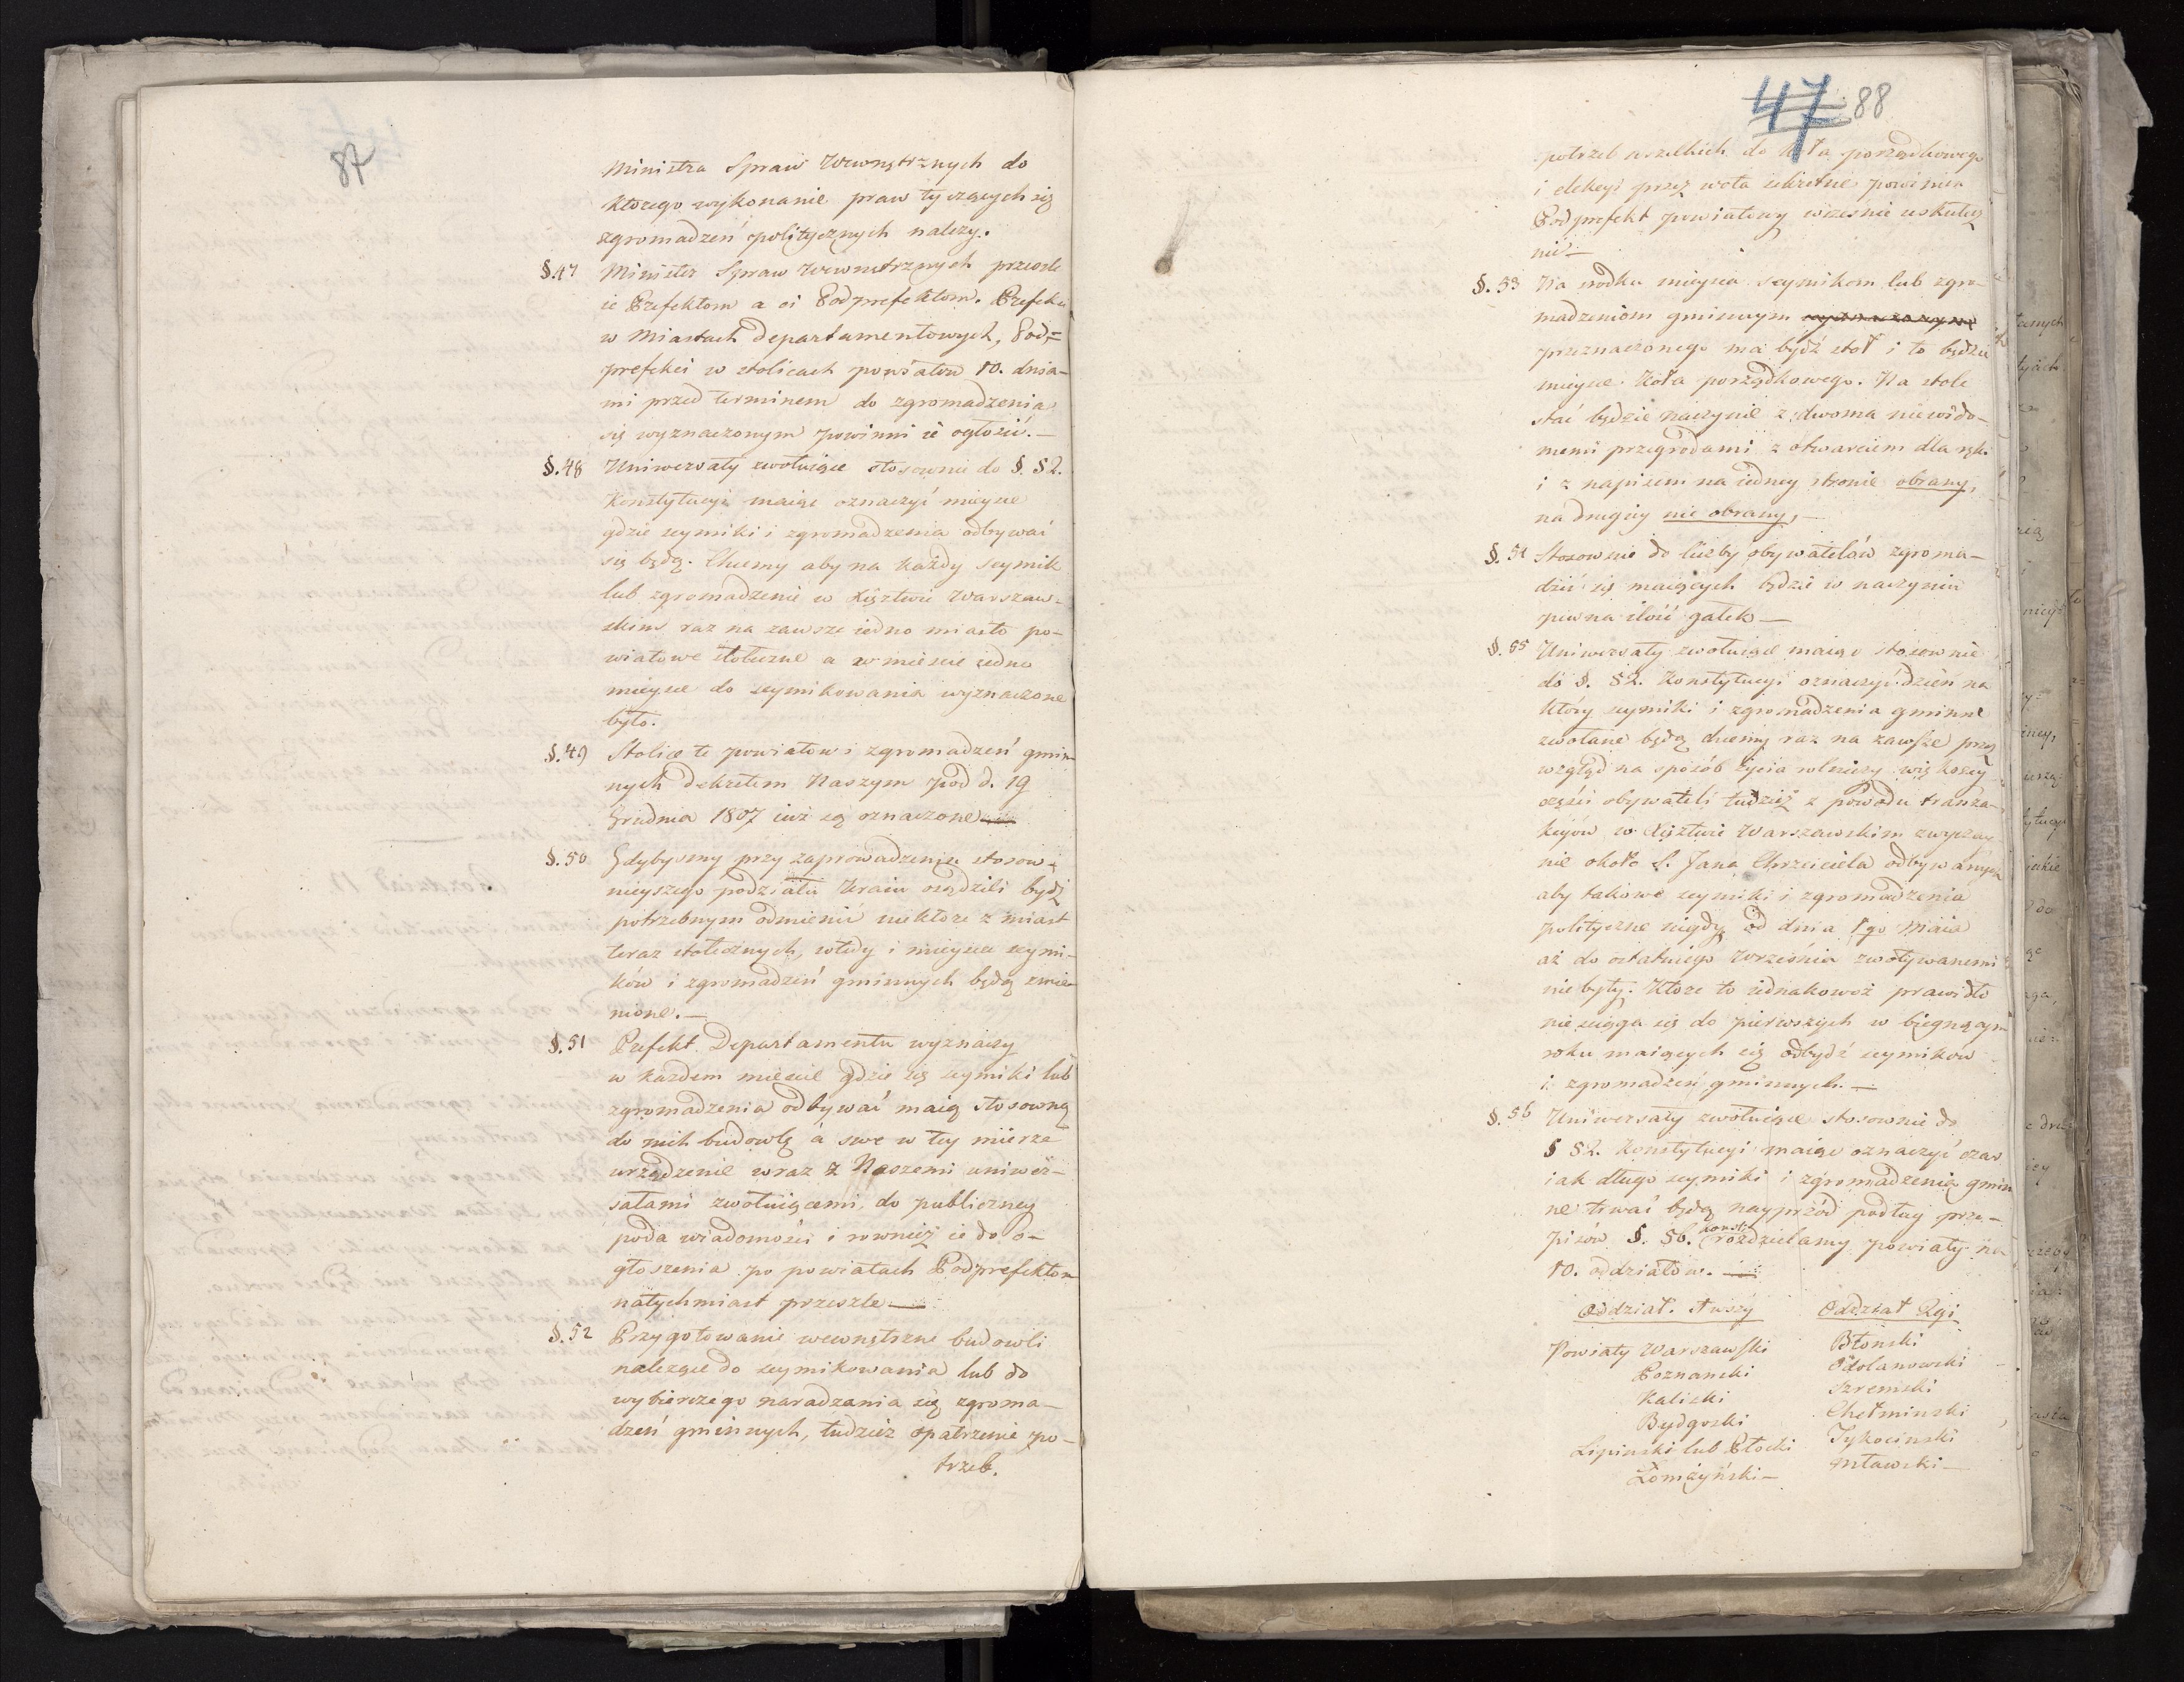 87
Ministra Spraw Wewnętrznych do
ktorego wykonanie praw tyczących się
zgromadzeń politycznych należy.
§.47 Minister Spraw Wewnetrznych przeszle
ie Prefektom a ci Podprefektom. Prefekci
w Miastach Departamentowych, Pod=
prefekci w stolicach powiatow 10. dnia-
mi przed terminem do zgromadzenia
się wyznaczonym powinni ie ogłosić.—
§.48 Uniwersały zwołuiące stosownie do §. 52.
Konstytucyi maiąc oznaczyć mieysce
gdzie seymiki i zgromadzenia odbywać
się będą. Chcemy aby na każdy seymik
lub zgromadzenie w Xięztwie Warszaw-
skim raz na zawsze iedno miasto po-
wiatowe stołeczne a w mieście iedno
mieysce do seymikowania wyznaczone
było.
§.49 Stolice te powiatow i zgromadzeń gmin-
nych Dekretem Naszym pod d. 19
Grudnia 1807 iuż są oznaczone—
§.50 Gdybysmy przy zaprowadzeniu stosow-
nieyszego podziału Kraiu osądzili bydź
potrzebnym odmienić niektore z miast
teraz stołecznych, wtedy i mieysca seymi-
ków i zgromadzeń gminnych będą zmie-
nione.—
§.51 Prefekt Departamentu wyznaczy
w każdem mieście gdzie się seymiki lub
zgromadzenia odbywać maią stosowną
do nich budowlę a swe w tey mierze
urządzenie wraz z Naszemi uniwer-
sałami zwołuiącemi, do publiczney
poda wiadomości i rownież ie do o-
głoszenia po powiatach Podprefektom
natychmiast przeszle—
§.52 Przygotowanie wewnętrzne budowli
należące do seymikowania lub do
wybierczego naradzania się zgroma-
dzeń gminnych, tudzież opatrzenie po-
trzeb.
47 88
potrzeb wszelkich do koła porządkowego
i elekcyi przez wota sekretne powinien
Podprefekt powiatowy wcześnie uskutecz
nić—
§.53 Na srodku mieysca seymikom lub zgro-
madzeniom gminnym
przeznaczonego ma bydź stoł i to będzie
mieysce Koła porządkowego. Na stole
stać będzie naczynie z dwoma niewido-
memi przegrodami z otwarciem dla ręki
i z napisem na iedney stronie obrany,
na drugiey nie obrany,—
§.54 Stosownie do liczby obywatelow zgroma-
dzić się maiących będzie w naczyniu
pewna ilość gałek—
§.55 Uniwersały zwołuiące maiąc stosownie
do §. 52. Konstytucyi oznaczyć dzień na
ktory seymiki i zgromadzenia gminne
zwołane będą chcemy raz na zawsze przez
wzgląd na sposób życia rolniczy większey
części obywateli tudzież z powodu tranza-
kcyów w Xięztwie Warszawskim zwyczay
nie około S. Jana Chrzciciela odbywanych
aby takowe seymiki i zgromadzenia
polityczne nigdy od dnia 1go Maia
aż do ostatniego Września zwoływanemi
nie były. Ktore to iednakowoż prawidło
nie sciąga się do pierwszych w bieguącym
roku maiących się odbydź seymikow
i zgromadzeń gminnych.—
§.56 Uniwersały zwołuiące stosownie do
§ 52. Konstytucyi maiąc oznaczyć czas
iak długo seymiki i zgromadzenia gmin
ne trwać będą nayprzód podług prze-
pisów §. 56. Konst: rozdzielamy powiaty na
10. oddziałow.—
Oddział 1wszy Oddział 2gi
Powiaty Warszawski Błonski
Poznanski Odolanowski
Kaliski Szremski
Bydgoski Chełminski
Lipinski lub Płocki Tykocinski
Łomżyński— Mławski—